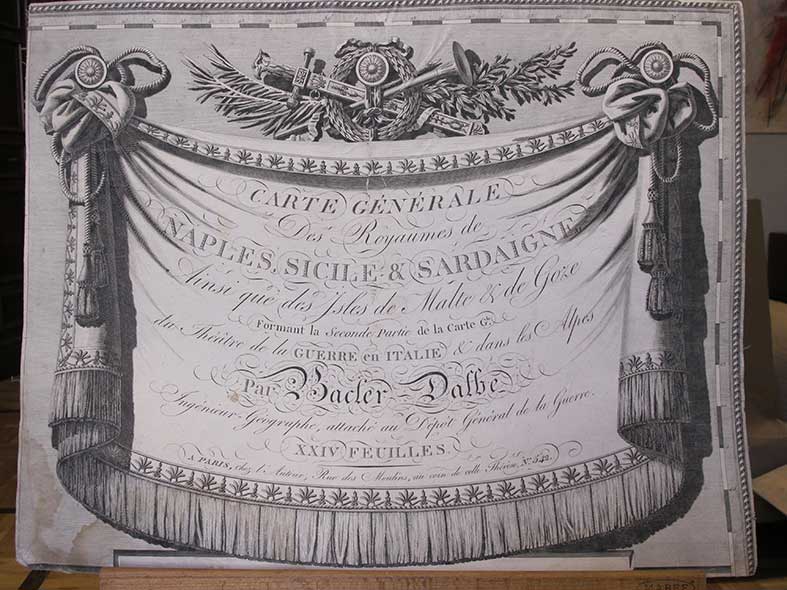 CARTE GÉNÉRALE
Des Royaumes de
NAPLES, SICILE & SARDAIGNE,
Ainsi que des Isles de Malte & de Goze
Formant la Seconde Partie de la Carte Gle.
du Théâtre de la GUERRE en ITALIE & dans les Alpes
Par Bacler-Dalbe
Ingénieur-Géographe, attaché au Dépôt Général de la Guerre.
XXIV FEUILLES.
A PARIS, chez l'Auteur, Rue des Moulins, au coin de celle Thérèse, No. 542.